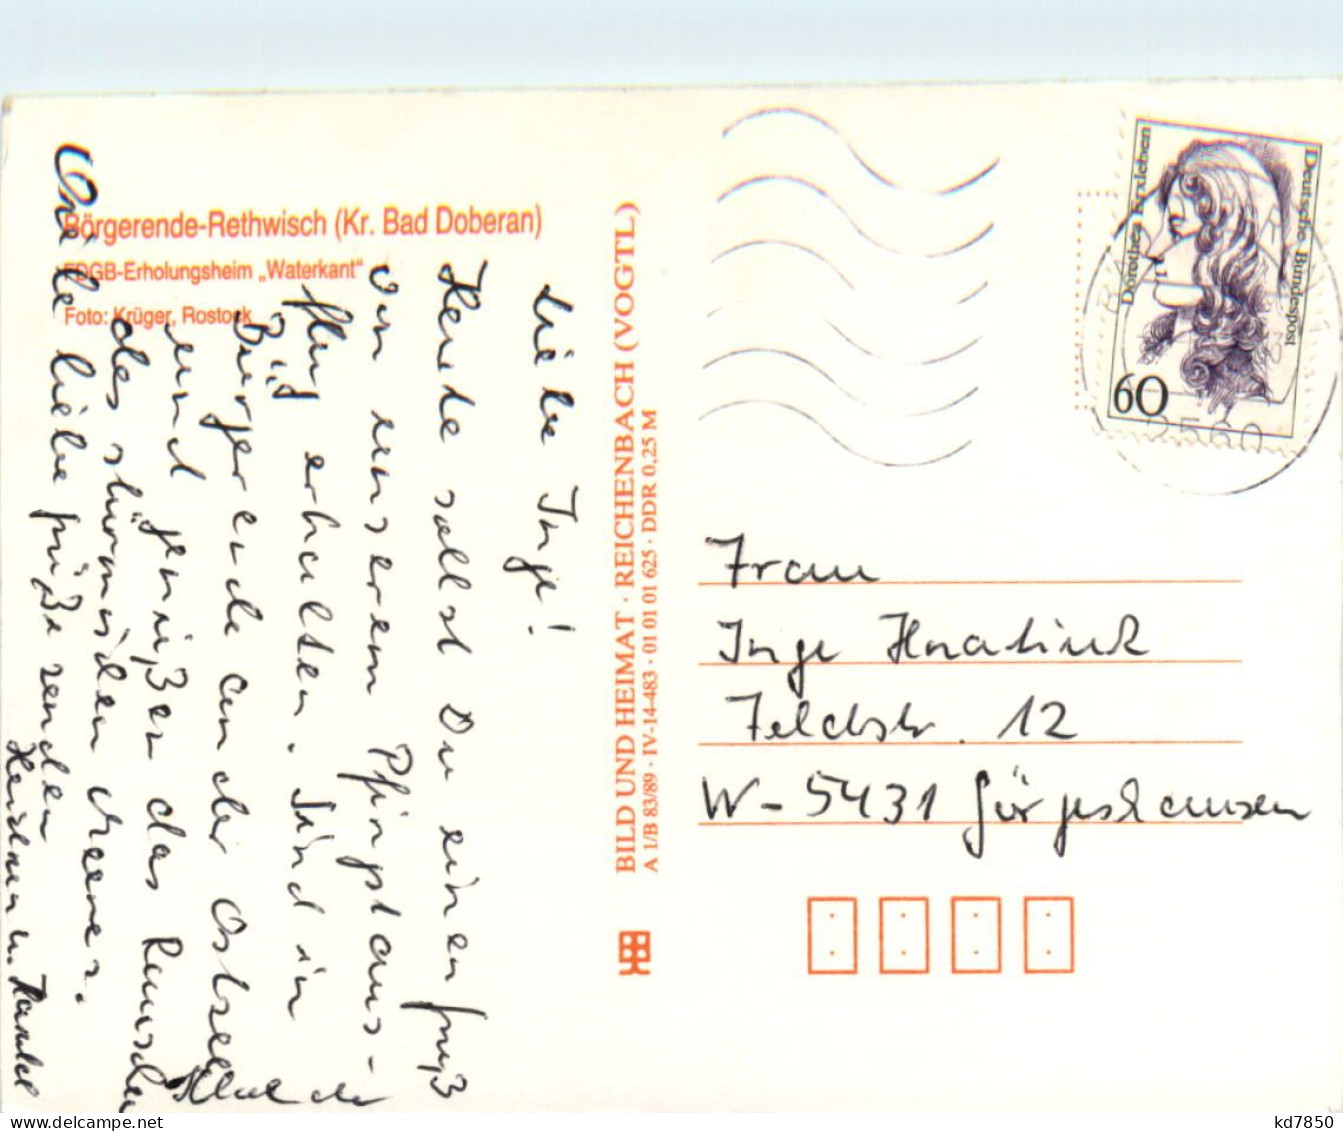 Börgerende-Rethwisch (Kr. Bad Doberan)
FDGB-Erholungsheim „Waterkant"
Foto: Krüger, Rostock
Liebe Inge!
Heute sollst Du einen Gruß
von unserem Pfingstaus-
flug erhalten. Sind in
Börgerende an der Ostsee
und genießen das Rauschen
des stürmischen Meeres.
Viele liebe Grüße senden
u.
BILD UND HEIMAT · REICHENBACH (VOGTL)
A 1/B 83/89 · IV-14-483 · 01 01 01 625 · DDR 0,25 M
Deutsche Bundespost
Dorothea Erxleben
60
2560
Frau
Inge
Feldstr. 12
W-5431 Görgeshausen
delcampe.net
kd7850